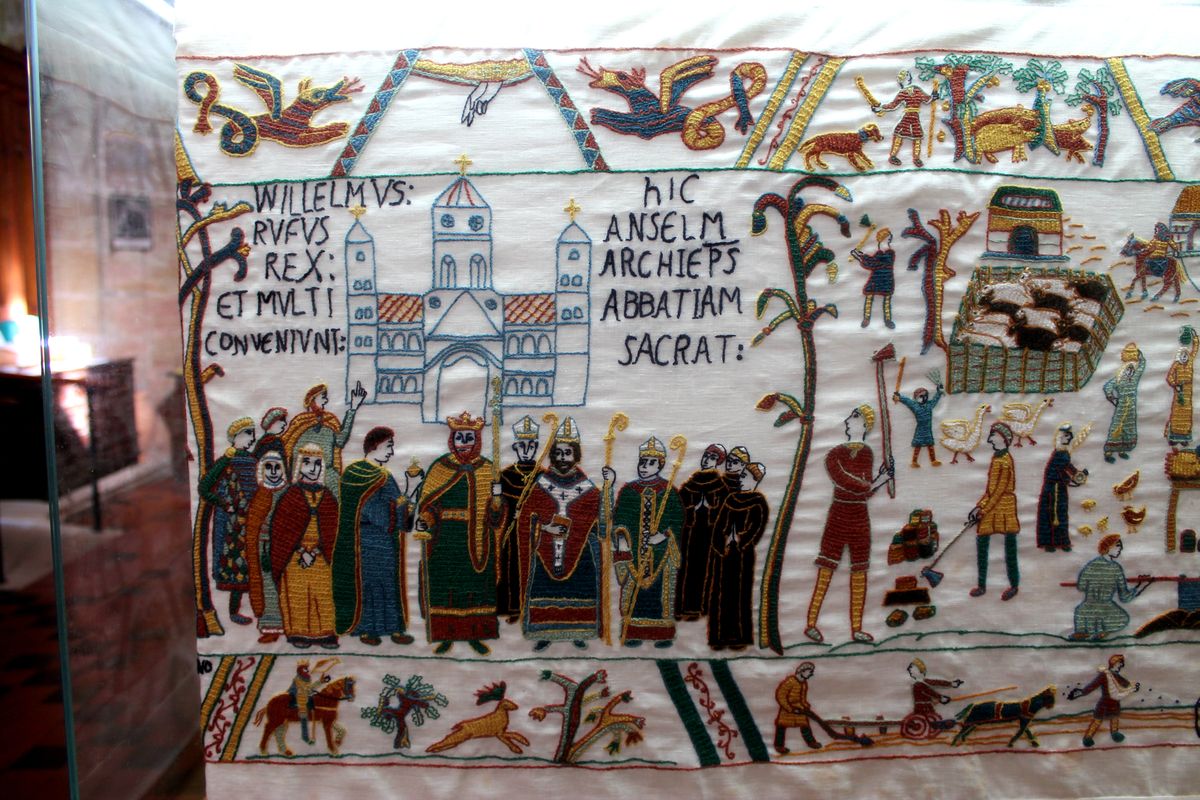 WILLELMVS:
RVFVS
REX:
ET MVLTI
CONVENIVNT:
hIC
ANSELM
ARCHIEPS
ABBATIAM
SACRAT: